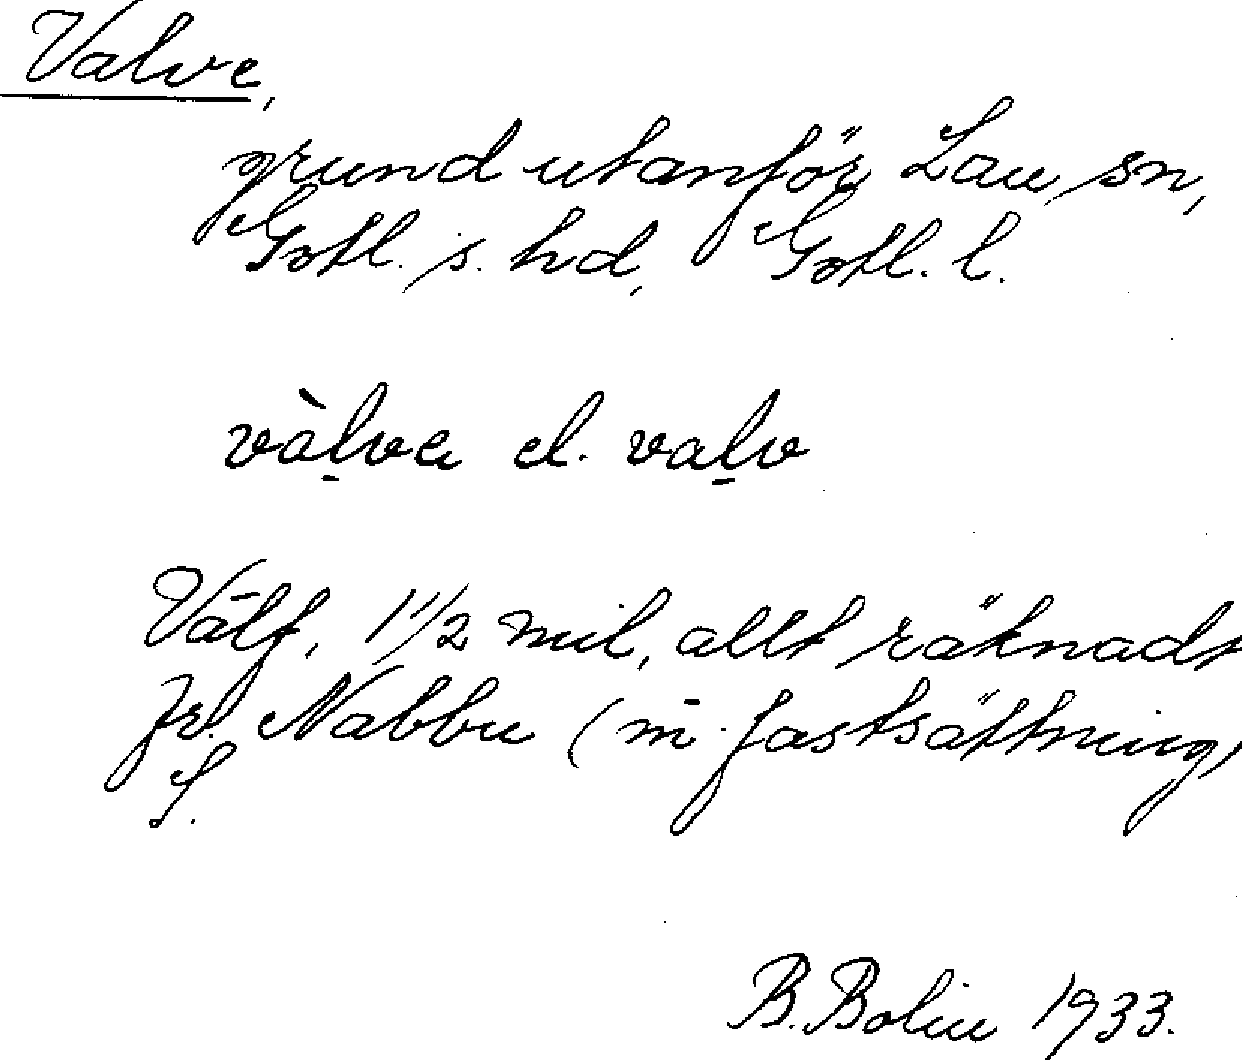 Valve,
grund utanför Lau sn,
Gotl. s. hd, Gotl. l.
vàl̠va el. val̠v
1 1/2 mil, allt räknadt
fr. Nabbu (m fastsättning,
B. Bolin 1933.